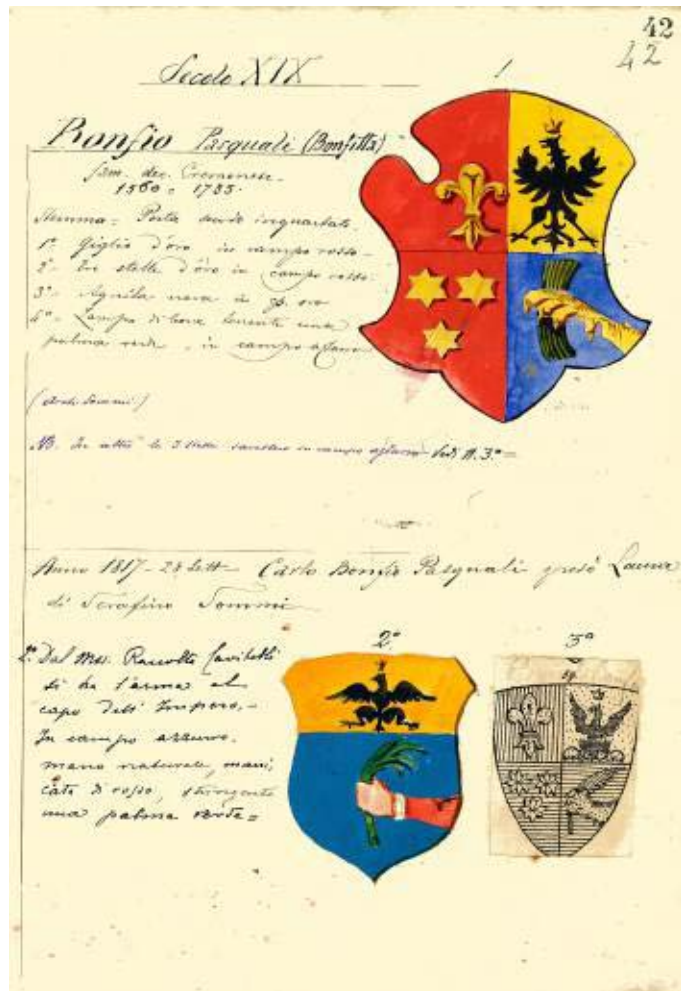 42
42
Secolo XIX
1
Bonfio Pasquali (Bonfitta)
fam. dec. Cremonese.
1560 = 1785.
Stemma = Porta scudo inquartato.
1º Giglio d'oro in campo rosso -
2º Tre stelle d'oro in campo rosso.
3º - Aquila nera in oro
4º - Zampa di leone tenente una
palma verde - in campo azzurro
(Arch. Sommi)
NB. In altro le 3 stelle sarebbero in campo azzurro Vedi N. 3.º =
Anno 1817 - 28 Sett - Carlo Bonfio Pasquali sposò Laura
di Serafino Sommi
2º Dal Mss. Raccolta Cavitelli
si ha l'arma al
capo dell'Impero. -
In campo azzurro.
mano naturale, mani,
cata di rosso, stringente
una palma verde =
2º
3º